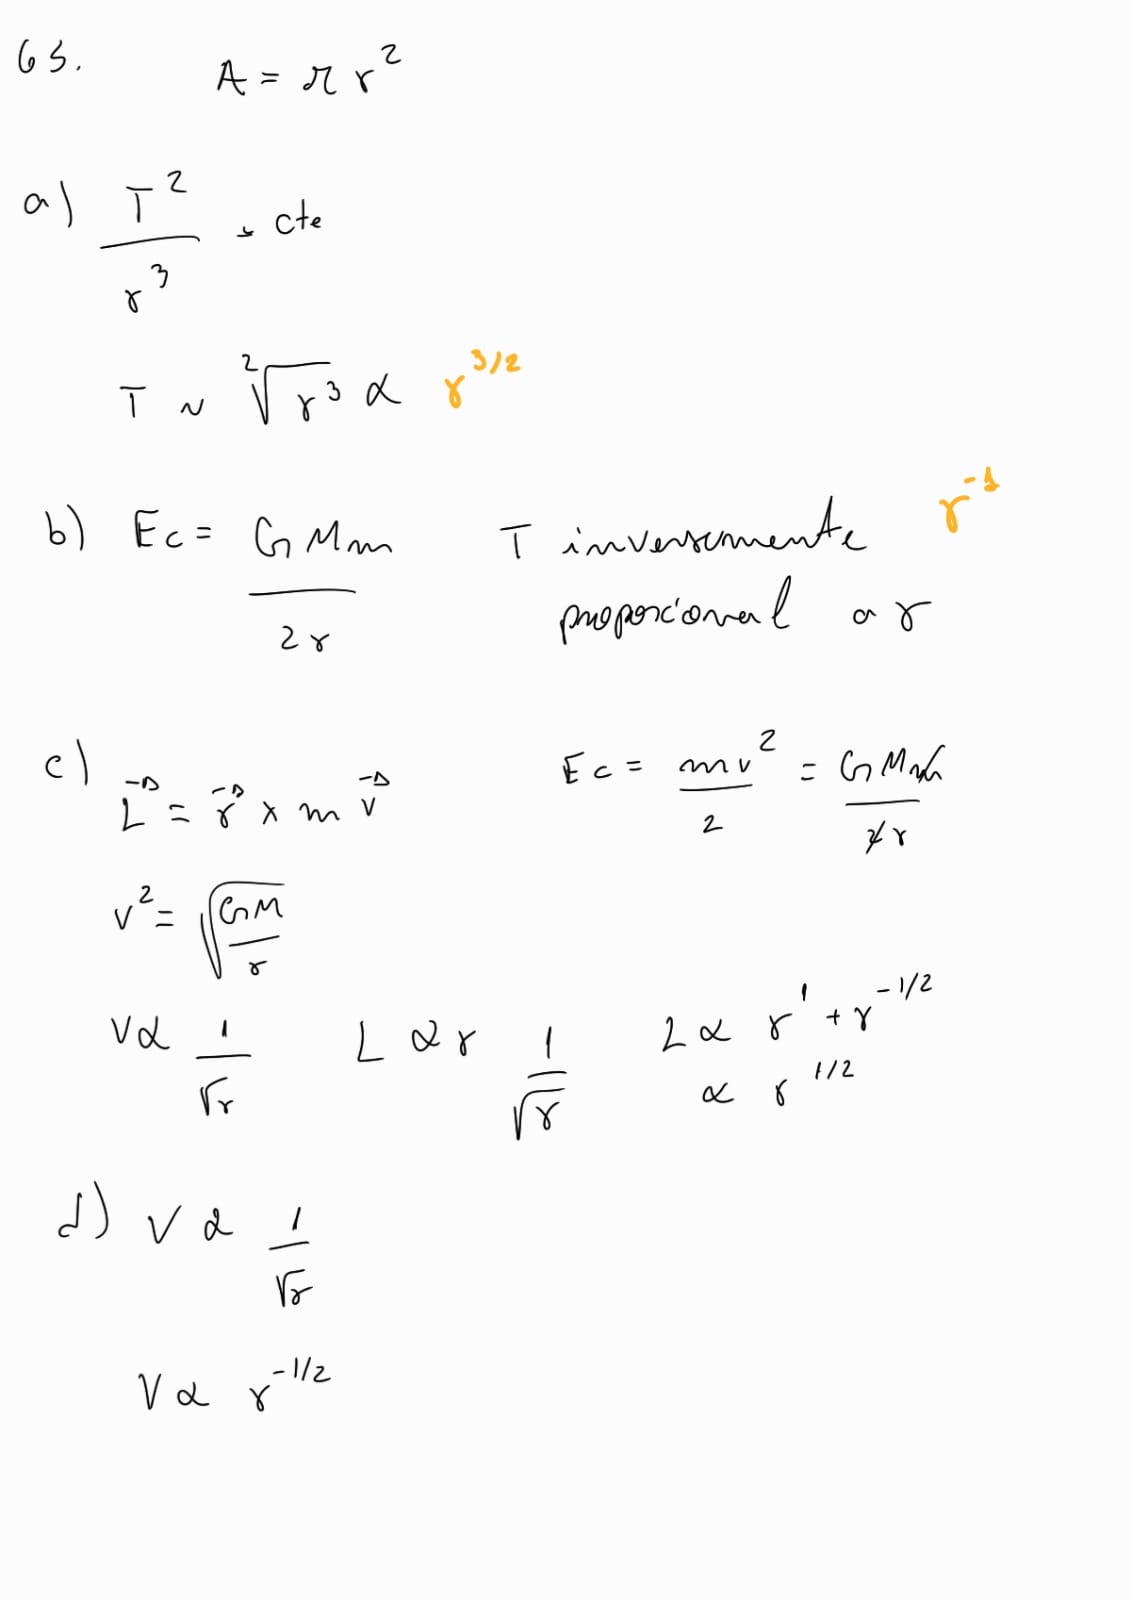 63.
A = π r²
a) T² / r³ → cte
T ~ ²√r³ ∝ r^3/2
b) Ec = GMm / 2r T inversamente r⁻¹
proporcional a r
c) L⃗ = r⃗ × m v⃗ Ec = mv² / 2 = GMm / 2r
v² = √(GM / r)
V ∝ 1 / √r L ∝ r 1 / √r L ∝ r¹ + r^-1/2
∝ r^1/2
d) V ∝ 1 / √r
V ∝ r^-1/2